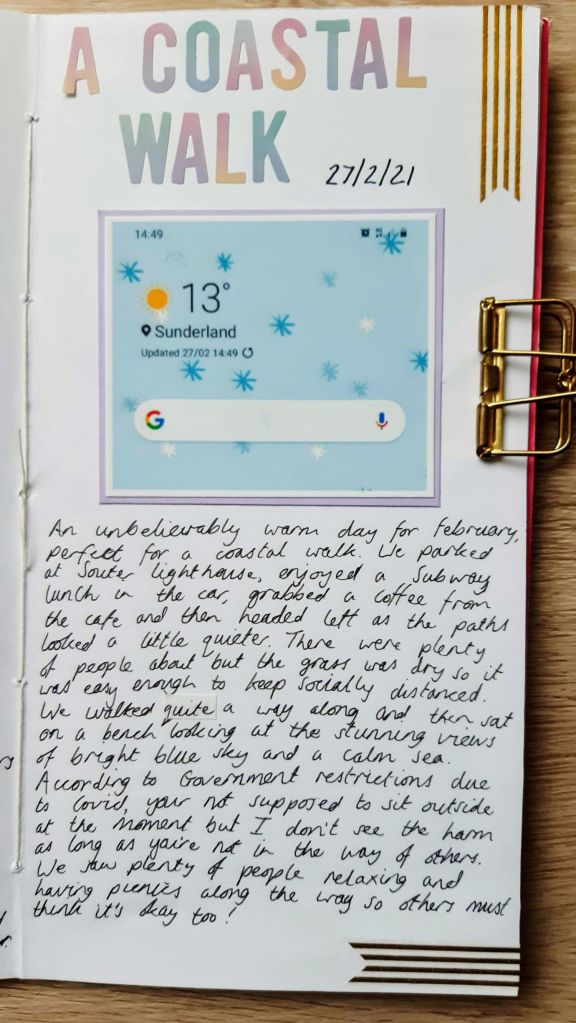 A COASTAL
WALK
27/2/21
14:49
13°
Sunderland
Updated 27/02 14:49
G
An unbelievably warm day for February,
perfect for a coastal walk. We parked
at Souter lighthouse, enjoyed a Subway
lunch in the car, grabbed a coffee from
the cafe and then headed left as the paths
looked a little quieter. There were plenty
of people about but the grass was dry so it
was easy enough to keep socially distanced.
We walked quite a way along and then sat
on a bench looking at the stunning views
of bright blue sky and a calm sea.
According to Government restrictions due
to Covid, your not supposed to sit outside
at the moment but I don't see the harm
as long as you're not in the way of others.
We saw plenty of people relaxing and
having picnics along the way so others must
think it's okay too!